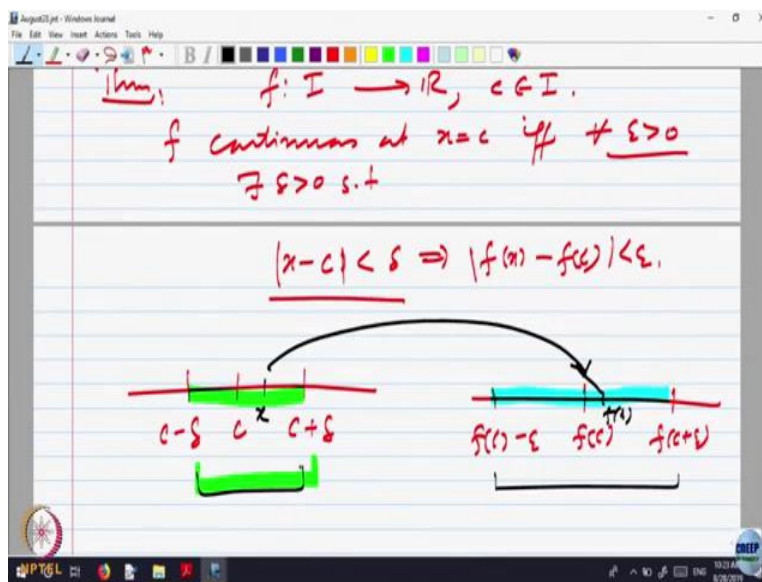 August28.jnt - Windows Journal
File Edit View Insert Actions Tools Help
Thm, f: I → IR, c ∈ I.
f continuous at x=c iff ∀ ε>0
∃ δ>0 s.t
|x-c| < δ ⇒ |f(x) - f(c)| < ε.
c-δ c x c+δ f(c)-ε f(c) f(x) f(c+ε)
NPTEL
CDEEP
ENG 10:23 AM
8/28/2019